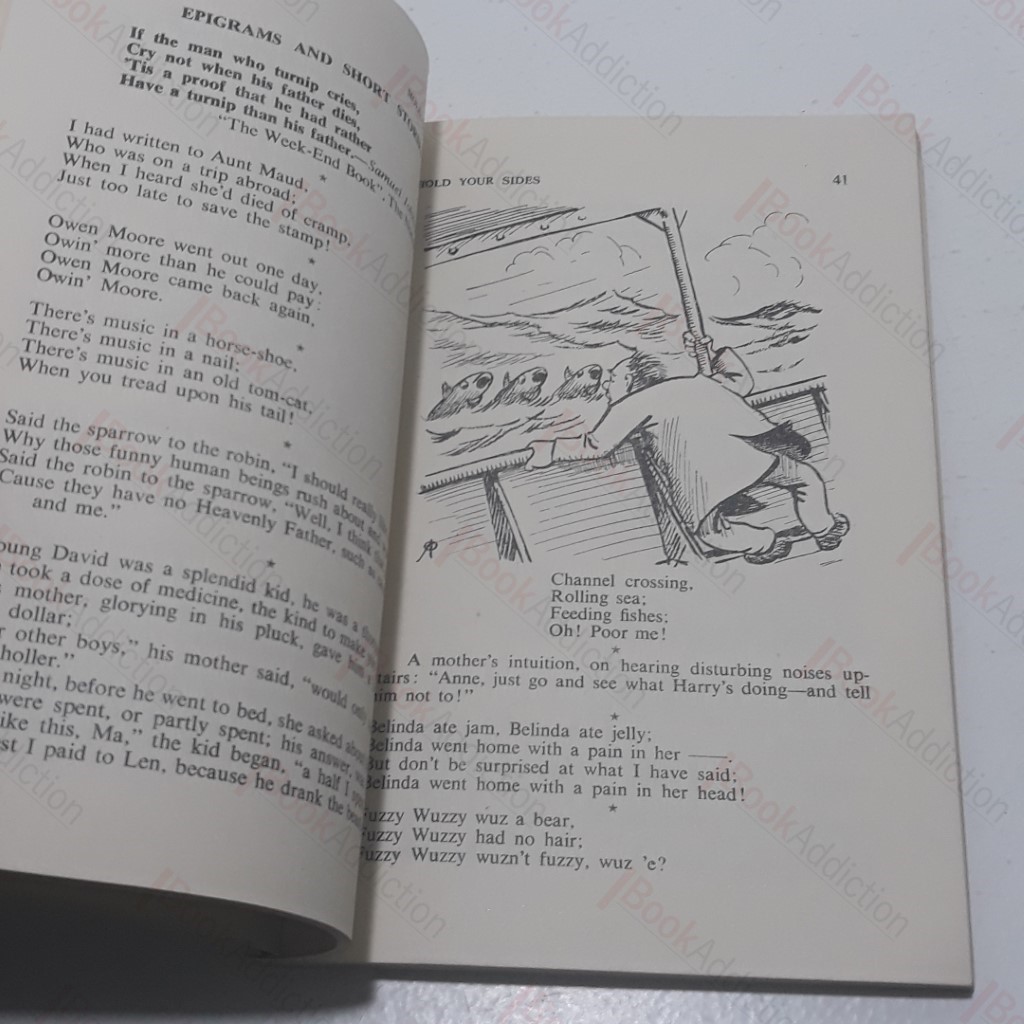 EPIGRAMS AND SHORT
If the man who turnip cries,
Cry not when his father dies,
'Tis a proof that he had rather
Have a turnip than his father.—Samuel
"The Week-End Book".
*
I had written to Aunt Maud,
Who was on a trip abroad;
When I heard she'd died of cramp,
Just too late to save the stamp!
*
Owen Moore went out one day,
Owin' more than he could pay:
Owen Moore came back again,
Owin' Moore.
*
There's music in a horse-shoe,
There's music in a nail;
There's music in an old tom-cat,
When you tread upon his tail!
*
Said the sparrow to the robin, "I should really
Why those funny human beings rush about and
Said the robin to the sparrow, "Well, I think
Cause they have no Heavenly Father, such as
and me."
*
oung David was a splendid kid, he was a
took a dose of medicine, the kind to make
mother, glorying in his pluck, gave him a
dollar;
other boys," his mother said, "would only
holler."
night, before he went to bed, she asked about
were spent, or partly spent; his answer,
ike this, Ma," the kid began, "a half I
st I paid to Len, because he drank the
OLD YOUR SIDES 41
Channel crossing,
Rolling sea;
Feeding fishes;
Oh! Poor me!
*
A mother's intuition, on hearing disturbing noises up-
tairs: "Anne, just go and see what Harry's doing—and tell
im not to!"
*
Belinda ate jam, Belinda ate jelly;
Belinda went home with a pain in her ——.
But don't be surprised at what I have said;
Belinda went home with a pain in her head!
*
Fuzzy Wuzzy wuz a bear,
Fuzzy Wuzzy had no hair;
Fuzzy Wuzzy wuzn't fuzzy, wuz 'e?
BookAddiction